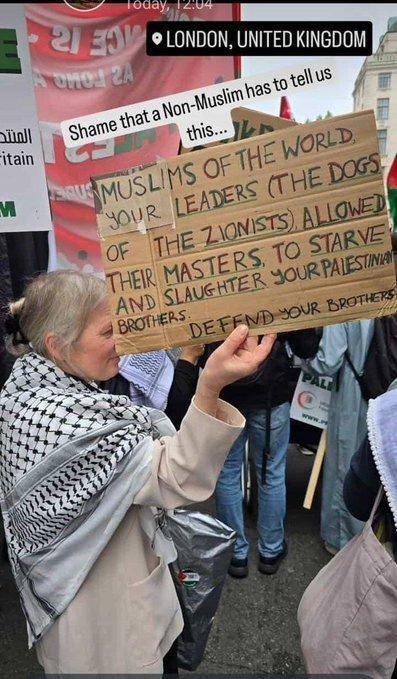 Today, 12:04
LONDON, UNITED KINGDOM
AS LONG
المنتد
ritain
Shame that a Non-Muslim has to tell us
this...
MUSLIMS OF THE WORLD,
YOUR LEADERS (THE DOGS
OF THE ZIONISTS) ALLOWED
THEIR MASTERS, TO STARVE
AND SLAUGHTER YOUR PALESTINIAN
BROTHERS.
DEFEND YOUR BROTHERS